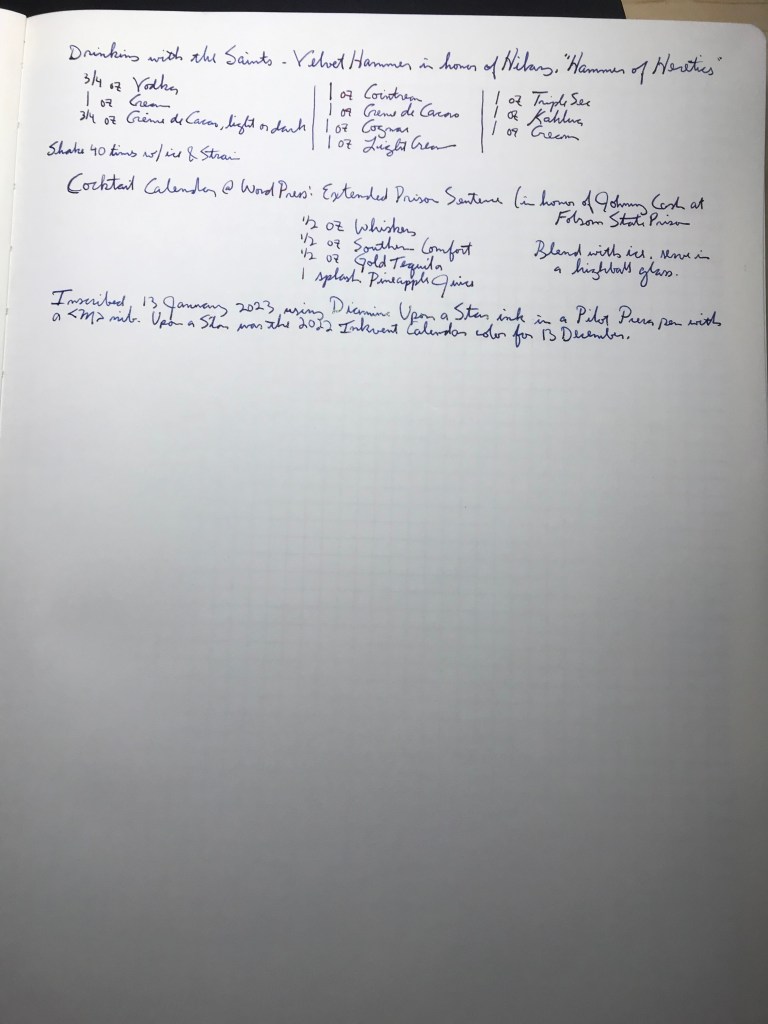 Drinking with the Saints - Velvet Hammer in honor of Hilary, "Hammer of Heretics"
3/4 oz Vodka
1 oz Cream
3/4 oz Crème de Cacao, light or dark
1 oz Cointreau
1 oz Creme de Cacao
1 oz Cognac
1 oz Light Cream
1 oz Triple Sec
1 oz Kahlua
1 oz Cream
Shake 40 times w/ ice & Strain
Cocktail Calendar @ WordPress: Extended Prison Sentence (in honor of Johnny Cash at
Folsom State Prison
1/2 oz Whiskey
1/2 oz Southern Comfort
1/2 oz Gold Tequila
1 splash Pineapple Juice
Blend with ice, serve in
a highball glass.
Inscribed 13 January 2023 using Diamine Upon a Star ink in a Pilot Prera pen with
a <M> nib. Upon a Star was the 2022 Inkvent Calendar color for 13 December.